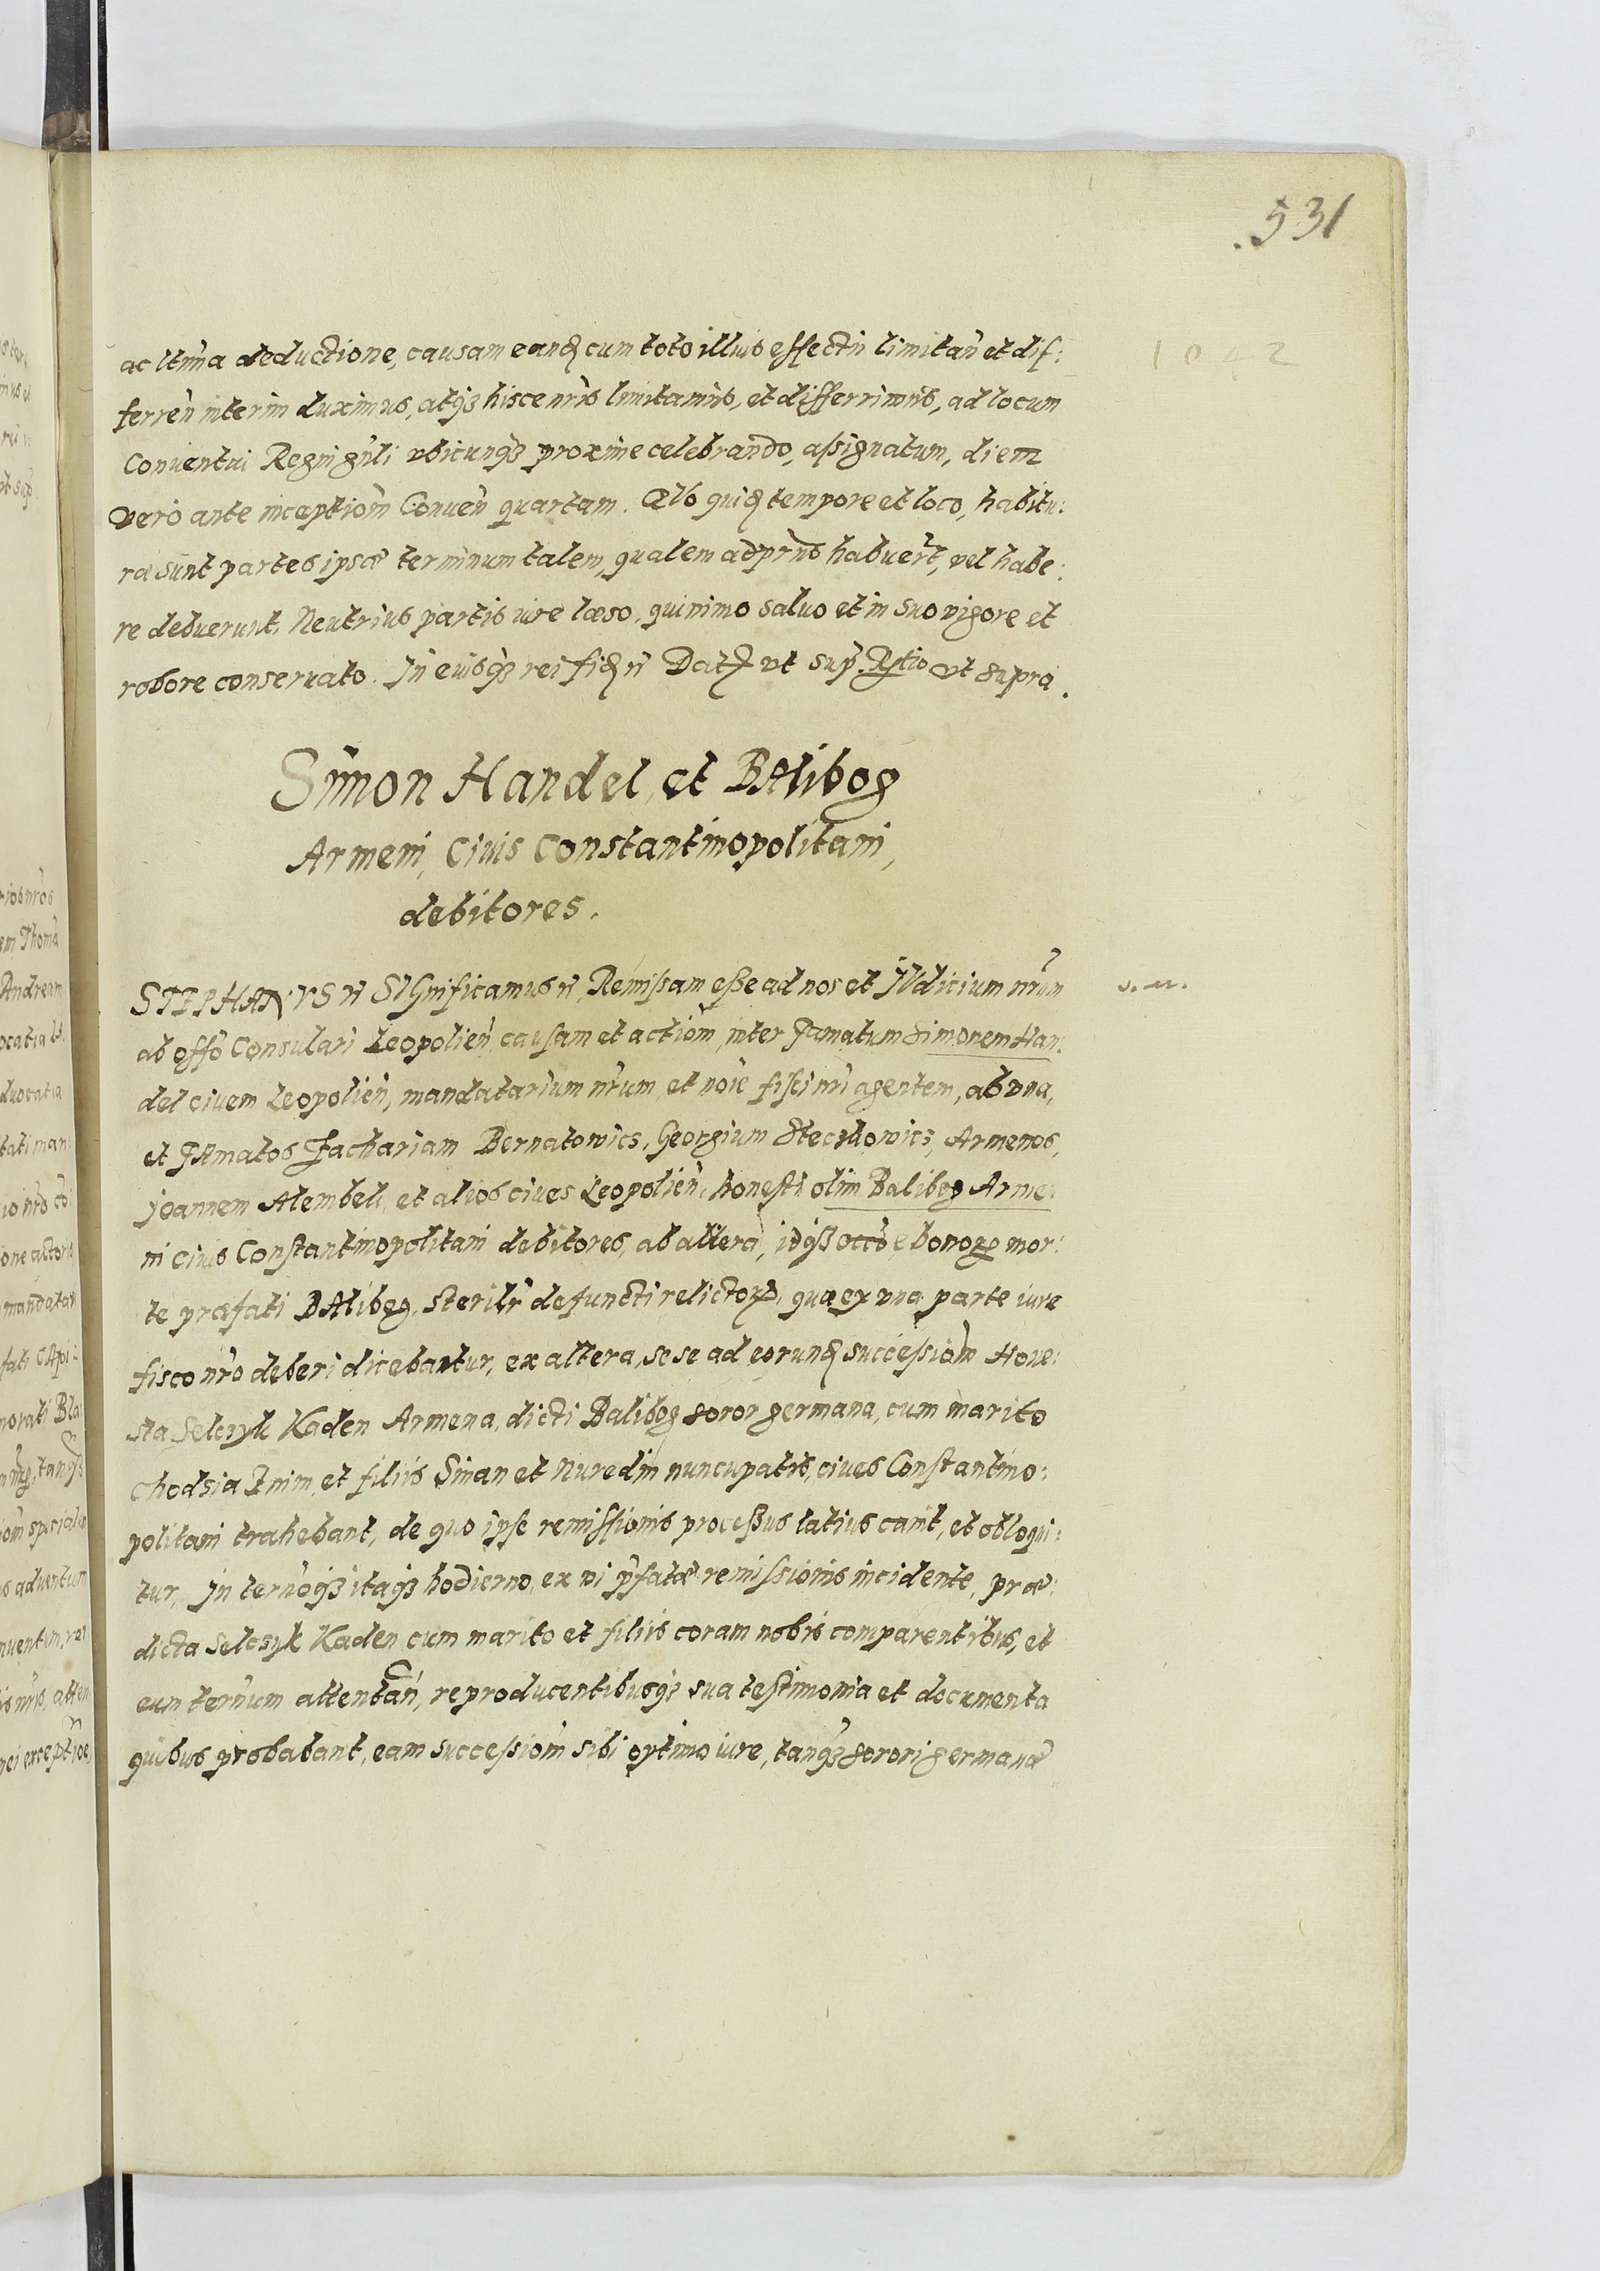 531
1042
ac ltima deductione, causam eandꝫ cum toto illius effectu limitan̄ et dif:
ferren̄ interim duximus, atqꝫ hisce nr̄is limitamus, et differrimus, ad locum
Conventui Regni gn̄li vbicunqꝫ proxime celebrando, assignatum, diem
vero ante inceptiom̄ Conven̄ quartam. Quo quidꝫ tempore et loco, habitu:
ræ sunt partes ipsæ terminum talem, qualem ad prn̄s habuert̄, vel habe:
re debuerunt, Neutrius partis iure læso, quinimo salvo et in suo vigore et
robore conservato. In cuius rei fidꝫ ñ Datꝫ vt sup̄ Rᵉˡᵃtio vt supra.
Simon Handel, et BAlibeg
Armeni, Civis Constantinopolitani,
debitores.
STEPHANVS ñ SIGnificamus ñ, Remissam esse ad nos et IVdicium nr̄um
ab offo Consulari Leopolien̄, causam et actiom̄ inter Famatum Simonem Han:
del civem Leopolien̄, mandatarium nr̄um, et noīe fisci nr̄i agentem, ab vna,
et FAmatos Zachariam Bernatowics, Georgium Steczkowicz, Armenos,
Joannem Alembek, et alios cives Leopolien̄, honesti olim Balibeg Arme:
ni civis Constantinopolitani debitores, ab altera, idqꝫ occ̄o bonorꝫ mor:
te præfati BAlibeg, sterilr̄ defuncti relictorꝫ, quæ ex vna parte iure
fisco nr̄o deberi dicebantur, ex altera, sese ad eorundꝫ successiom̄ Hone:
sta Selczyk Kaden Armena, dicti Balibeg soror germana, cum marito
Chodsia Inim, et filiis Sinan et Nuredin nuncupatis, cives Constantino:
politani trahebant, de quo ipse remissionis processus latius canit, et obloqui:
tur, In termoqꝫ itaqꝫ hodierno, ex vi p̄fatæ remissionis incidente, præ:
dicta Selcsyk Kaden cum marito et filiis coram nobis comparentibus, et
eum ter̄num attentan̄, reproducentibusqꝫ sua testimonia et documenta
quibus probabant, eam successiom̄ sibi optimo iure, tanqꝫ sorori germanæ